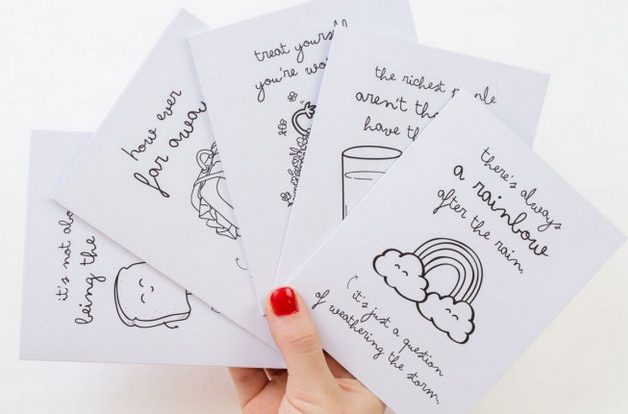 it's not
being the
how ever
far away
treat yourself
you're
the richest
aren't
have
there's always
a rainbow
after the rain,
(it's just a question
of weathering the storm,